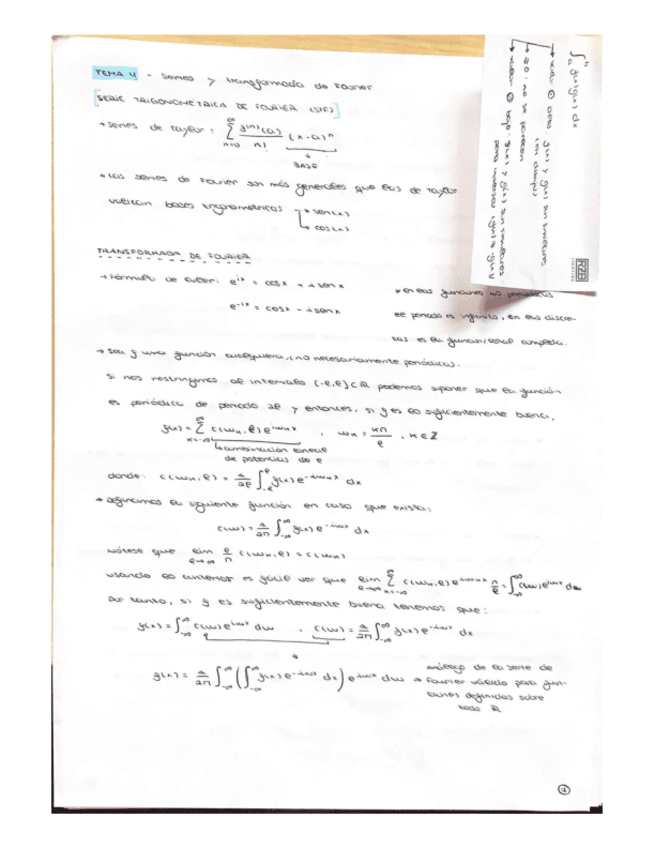 TEMA 4 - Series y transformada de Fourier
[SERIE TRIGONOMÉTRICA DE FOURIER (STF)]
→ series de Taylor: ∑_{n=0}^{∞} f^{(n)}(a)/n! (x-a)^n
BASE
→ Las series de Fourier son más generales que las de Taylor
utilizan bases trigonométricas → sen(x)
→ cos(x)
TRANSFORMADA DE FOURIER
→ Fórmula de Euler: e^{ix} = cosx + i senx
e^{-ix} = cosx - i senx
* en las funciones no periódicas
el periodo es infinito, en las discre-
tas es la función/señal completa.
→ sea f una función cualquiera, (no necesariamente periódica).
Si nos restringimos al intervalo (-l,l) ⊂ R podemos suponer que la función
es periódica de periodo 2l y entonces, si f es lo suficientemente buena,
f(x) = ∑_{k=-∞}^{∞} c(ω_k, l) e^{iω_k x} , ω_k = kπ/l , k ∈ Z
combinación lineal
de potencias de e
donde: c(ω_k, l) = 1/2l ∫_{-l}^{l} f(x) e^{-iω_k x} dx
→ definimos la siguiente función en caso que exista:
c(ω) = 1/2π ∫_{-∞}^{∞} f(x) e^{-iωx} dx
nótese que lim_{l→∞} l/π c(ω_k, l) = c(ω)
usando lo anterior es fácil ver que lim_{l→∞} ∑_{k=-∞}^{∞} c(ω_k, l) e^{iω_k x} π/l = ∫_{-∞}^{∞} c(ω) e^{iωx} dω
Por tanto, si f es suficientemente buena tenemos que:
f(x) = ∫_{-∞}^{∞} c(ω) e^{iωx} dω , c(ω) = 1/2π ∫_{-∞}^{∞} f(x) e^{-iωx} dx
f(x) = 1/2π ∫_{-∞}^{∞} (∫_{-∞}^{∞} f(x) e^{-iωx} dx) e^{iωx} dω →
análogo de la serie de
Fourier válido para fun-
ciones definidas sobre
todo R
∫ f(x) g(x) dx
→ 20 · no se parecen
RZB
LIGHTING